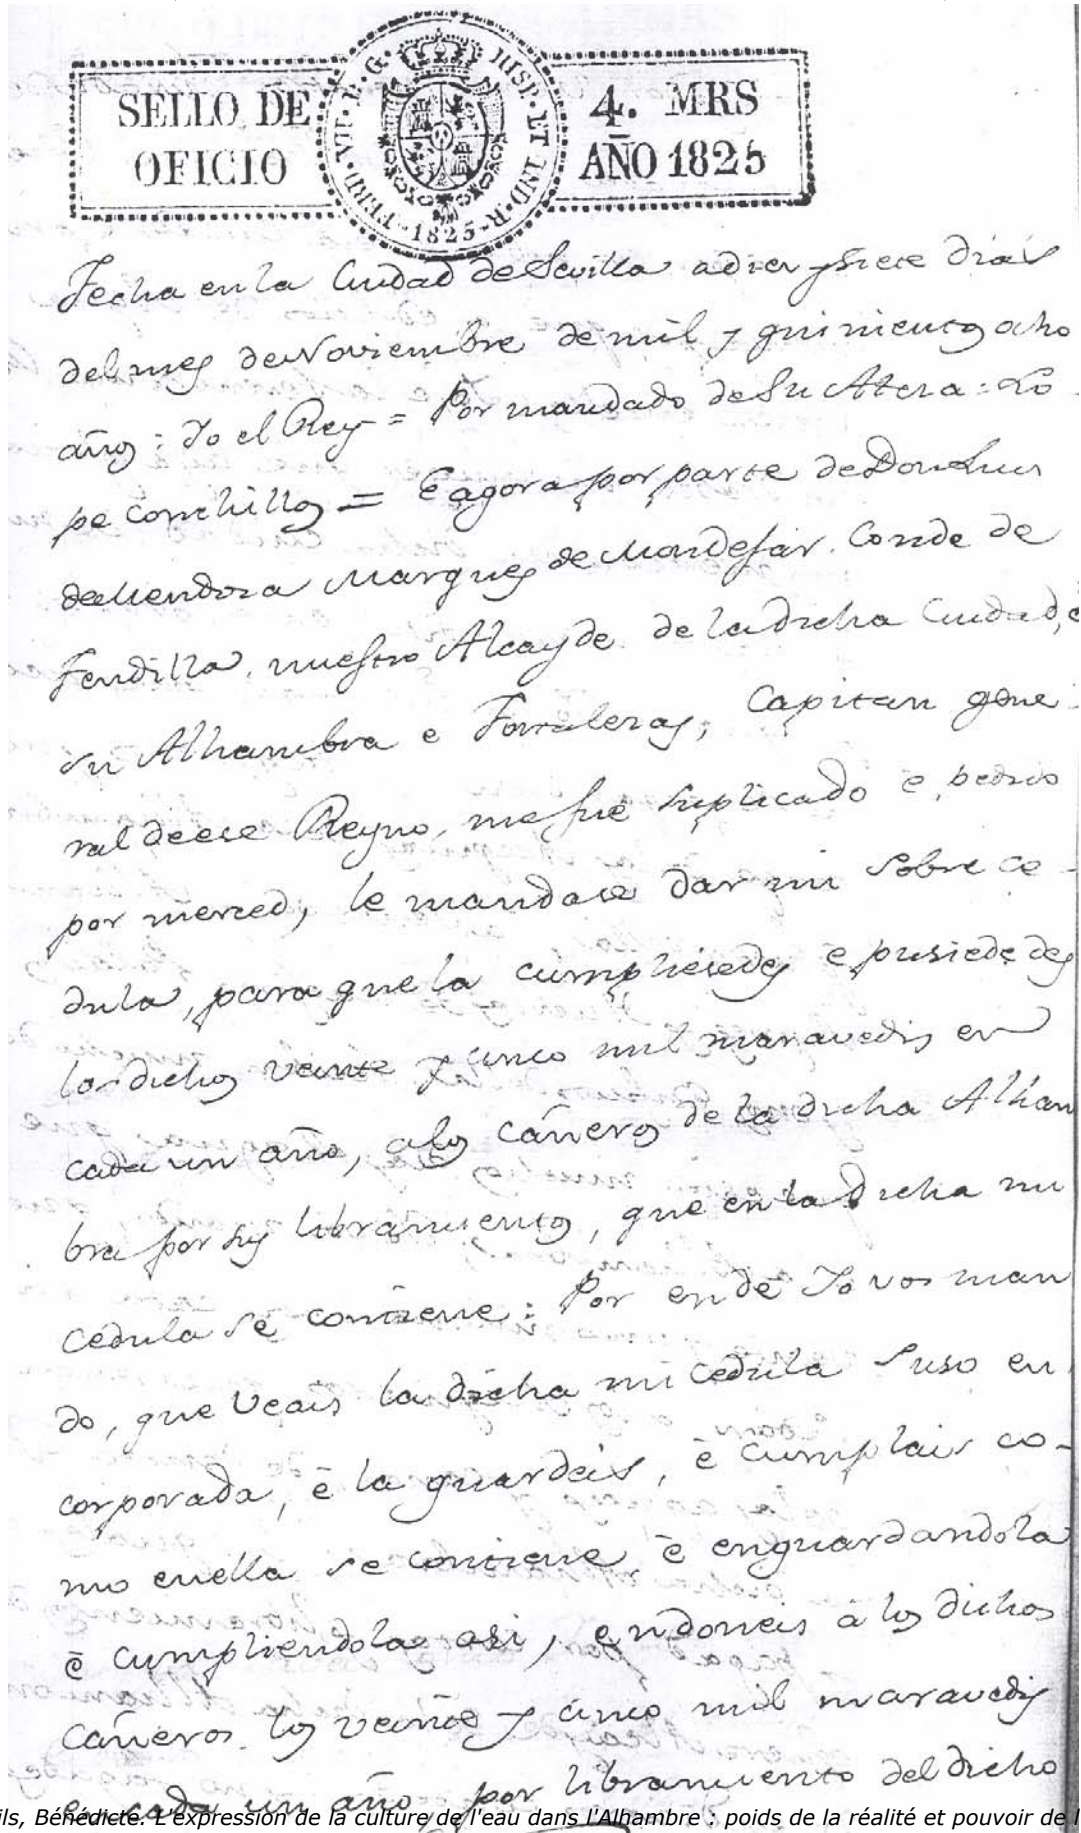 SELLO DE
OFICIO
FERD. VII. D. G. HISP. ET IND. R. 1825
4. MRS
AÑO 1825
Fecha en la Ciudad de Sevilla a diez y siete dias
del mes de Noviembre de mil y quinientos ocho
años: Yo el Rey = Por mandado de Su Alteza: Lo
pe Conchillos = E agora por parte de Don Luis
de Mendoza Marques de Mondejar. Conde de
Tendilla, nuestro Alcayde de la dicha Ciudad, é
su Alhambra e Fortalezas; Capitan gene
ral de ese Reyno, me fué suplicado e pedido
por merced, le mandase dar mi sobre ce-
dula, para que la cumpliesedes e
los dichos veinte y cinco mil maravedis en
cada un año, a los cañeros de la dicha Alham
bra por sus libramientos, que en la dicha mi
cedula se contiene: Por ende Yo vos man
do, que veais la dicha mi cedula suso en
corporada, é la guardeis, é cumplais co-
mo en ella se contiene é en guardandola
é cumpliendola asi, en los dichos
cañeros los veinte y cinco mil maravedis
en cada un año por libramiento del dicho
ils, Bénédicte. L'expression de la culture de l'eau dans l'Alhambre : poids de la réalité et pouvoir de l